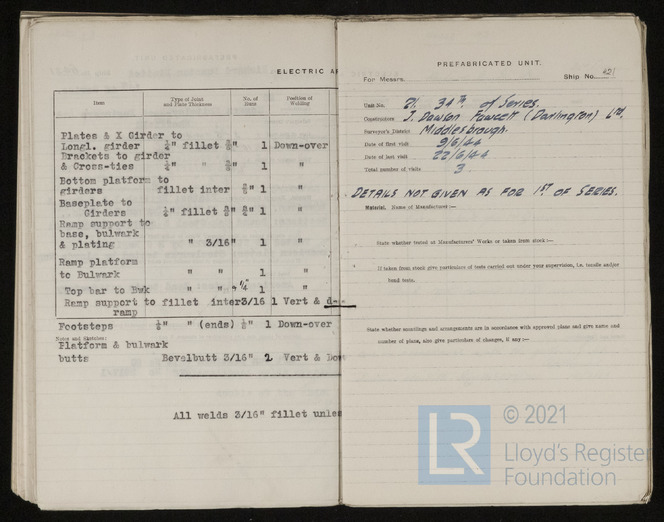 ELECTRIC A
Item Type of Joint and Plate Thickness No. of Runs Position of Welding
Plates & X Girder to
Longl. girder ¼" fillet ⅜" 1 Down-over
Brackets to girder
& Cross-ties ¼" " ⅜" 1 "
Bottom platform to
girders fillet inter ⅜" 1 "
Baseplate to
Girders ½" fillet ⅜" 1 "
Ramp support to
base, bulwark
& plating " 3/16" 1 "
Ramp platform
to Bulwark " " 1 "
Top bar to Bwk " " ¼" 1 "
Ramp support to fillet inter 3/16 1 Vert & d
ramp
Footsteps ¼" " (ends) ¼" 1 Down-over
Notes and Sketches:
Platform & bulwark
butts Bevelbutt 3/16" 2 Vert & Dow
All welds 3/16" fillet unle
PREFABRICATED UNIT.
For Messrs. Ship No. 421
Unit No. 21. 34th of Series.
Constructors J. Dawson Fawcett (Darlington) Ltd.
Surveyor's District Middlesbrough.
Date of first visit 9/6/44
Date of last visit 22/6/44
Total number of visits 3
DETAILS NOT GIVEN AS FOR 1ST OF SERIES.
Material. Name of Manufacturer :—
State whether tested at Manufacturers' Works or taken from stock :—
If taken from stock give particulars of tests carried out under your supervision, i.e. tensile and/or
bend tests.
State whether scantlings and arrangements are in accordance with approved plans and give name and
number of plans, also give particulars of changes, if any :—
LR
© 2021
Lloyd's Register
Foundation